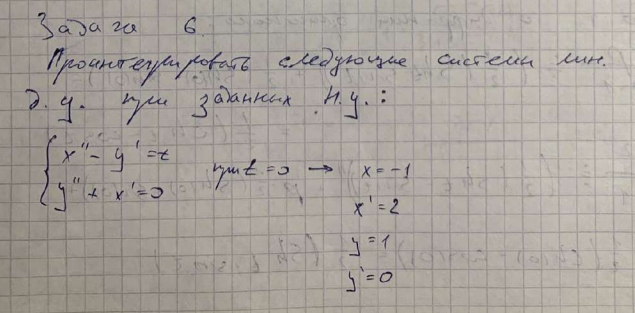 Задача 6.
Проинтегрировать следующие системы лин.
д. у. при заданных н.у.:
x'' - y' = t при t = 0 → x = -1
y'' + x' = 0 x' = 2
y = 1
y' = 0